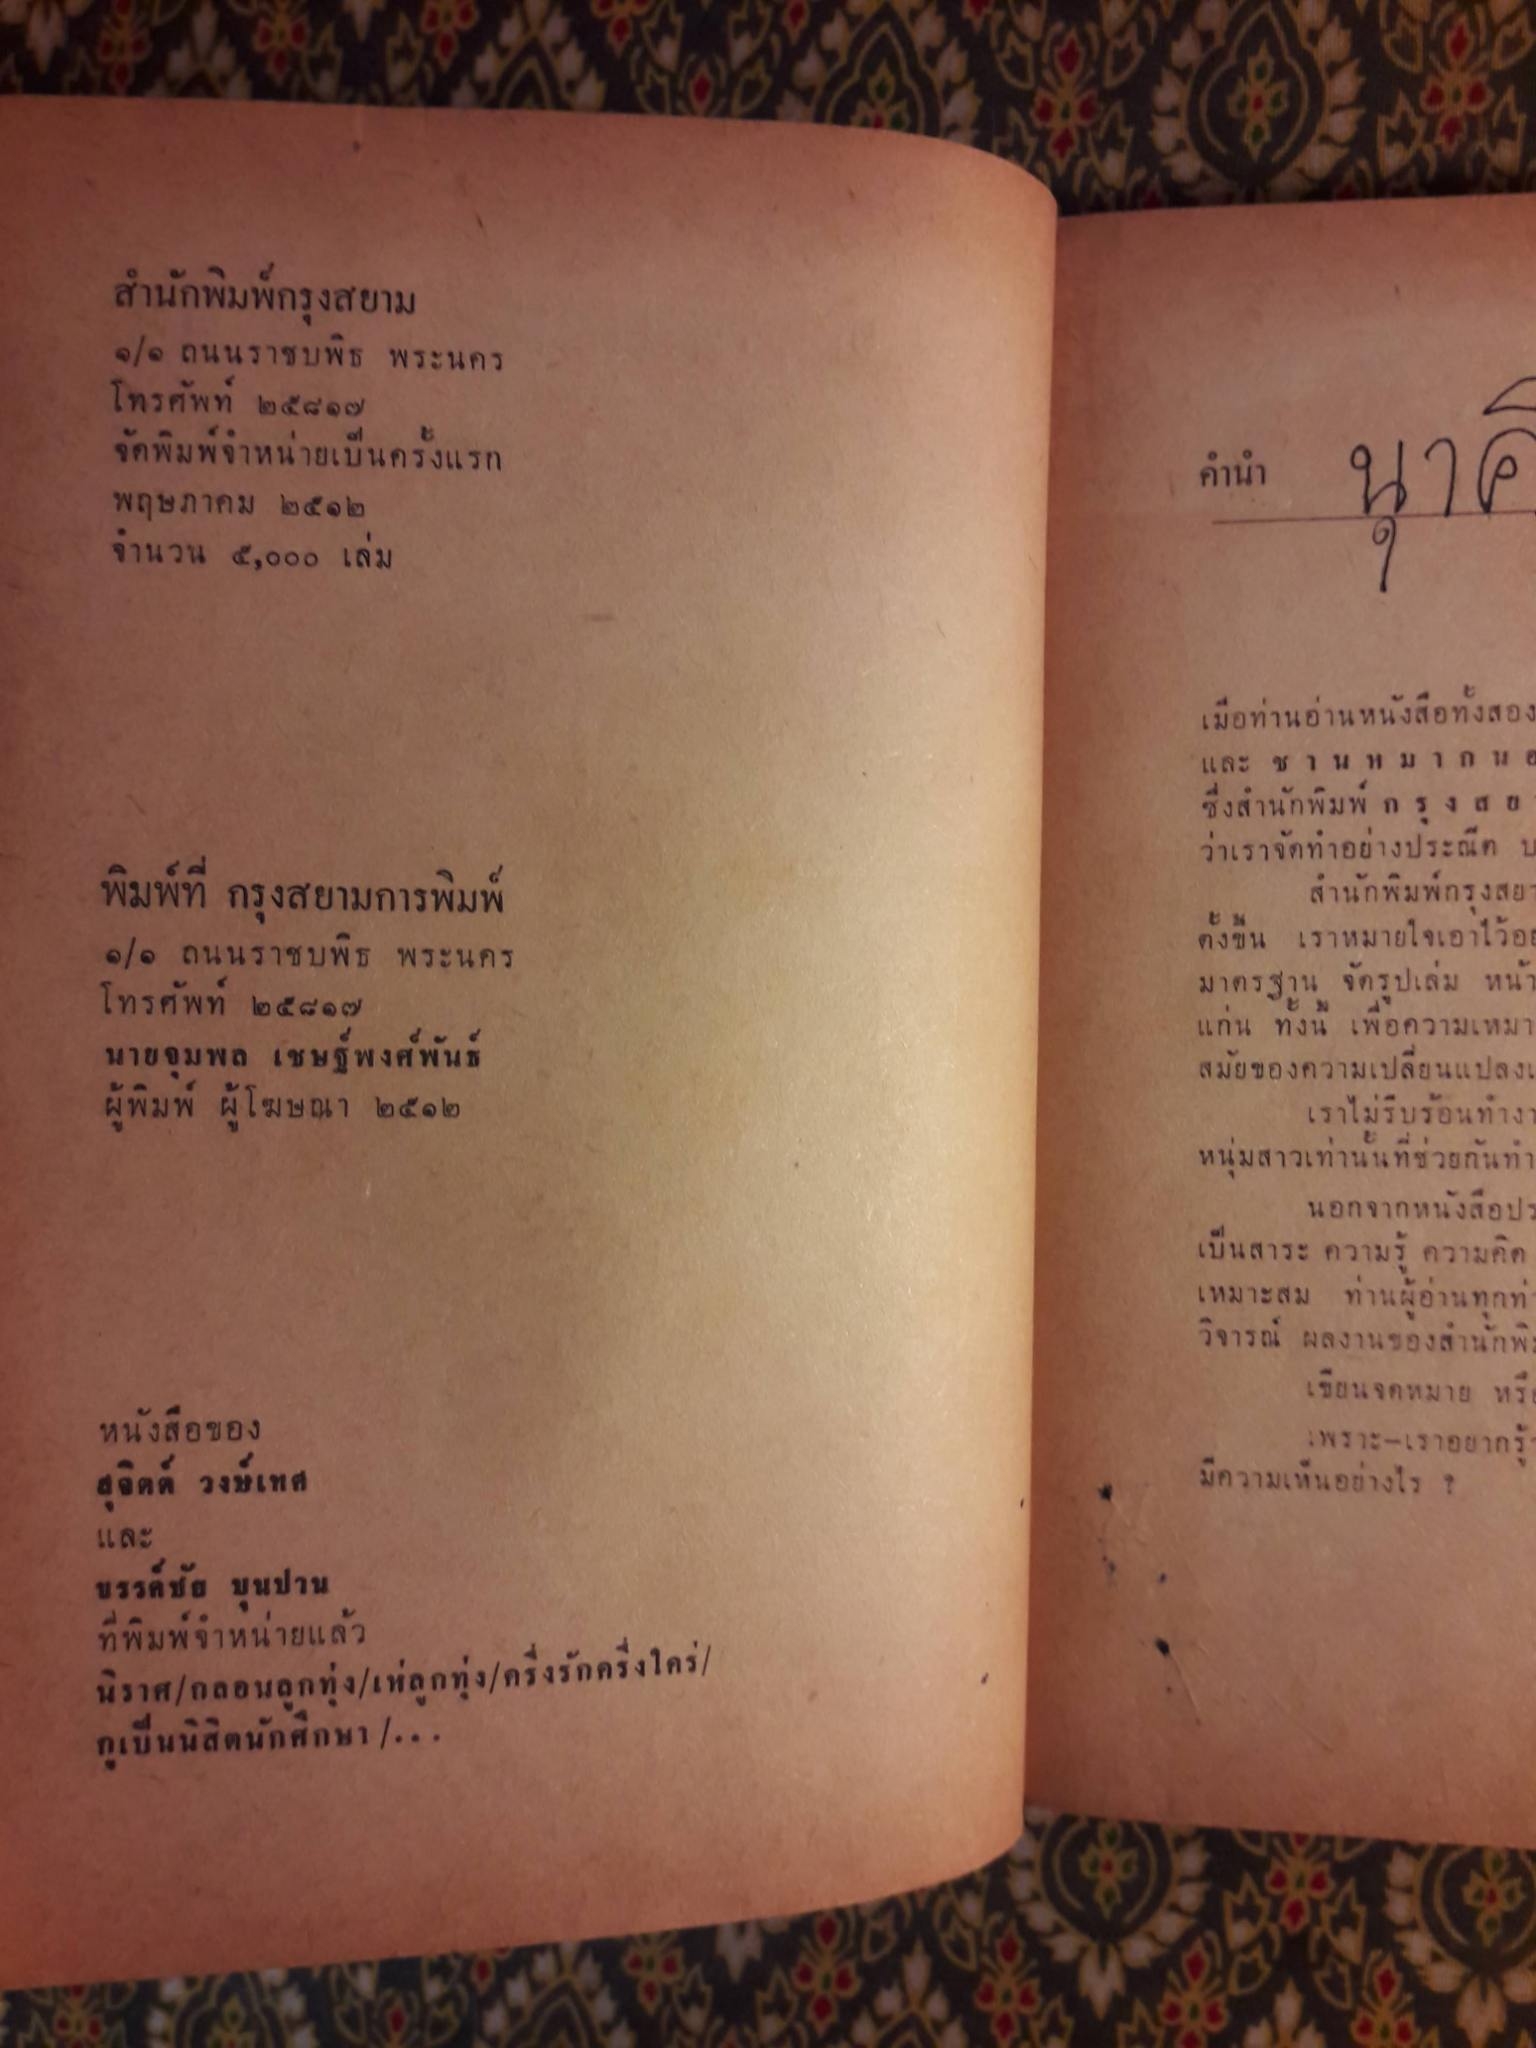 สำนักพิมพ์กรุงสยาม
๑/๑ ถนนราชบพิธ พระนคร
โทรศัพท์ ๒๕๘๑๗
จัดพิมพ์จำหน่ายเป็นครั้งแรก
พฤษภาคม ๒๕๑๒
จำนวน ๕,๐๐๐ เล่ม
พิมพ์ที่ กรุงสยามการพิมพ์
๑/๑ ถนนราชบพิธ พระนคร
โทรศัพท์ ๒๕๘๑๗
นายจุมพล เชษฐ์พงศ์พันธ์
ผู้พิมพ์ ผู้โฆษณา ๒๕๑๒
หนังสือของ
สุจิตต์ วงษ์เทศ
และ
ขรรค์ชัย บุนปาน
ที่พิมพ์จำหน่ายแล้ว
นิราศ/กลอนลูกทุ่ง/เห่ลูกทุ่ง/ครึ่งรักครึ่งใคร่/
กูเป็นนิสิตนักศึกษา/...
คำนำ
เมื่อท่านอ่านหนังสือทั้งสอง
และ ช า น ห ม า ก น อ
ซึ่งสำนักพิมพ์ ก รุ ง ส ย
ว่าเราจัดทำอย่างประณีต บ
สำนักพิมพ์กรุงสยา
ตั้งขึ้น เราหมายใจเอาไว้อย
มาตรฐาน จัดรูปเล่ม หน้า
แก่น ทั้งนี้ เพื่อความเหมา
สมัยของความเปลี่ยนแปลงเ
เราไม่รีบร้อนทำงา
หนุ่มสาวเท่านั้นที่ช่วยกันทำ
นอกจากหนังสือปร
เป็นสาระ ความรู้ ความคิด
เหมาะสม ท่านผู้อ่านทุกท่า
วิจารณ์ ผลงานของสำนักพิม
เขียนจดหมาย หรือ
เพราะ—เราอยากรู้ว
มีความเห็นอย่างไร ?